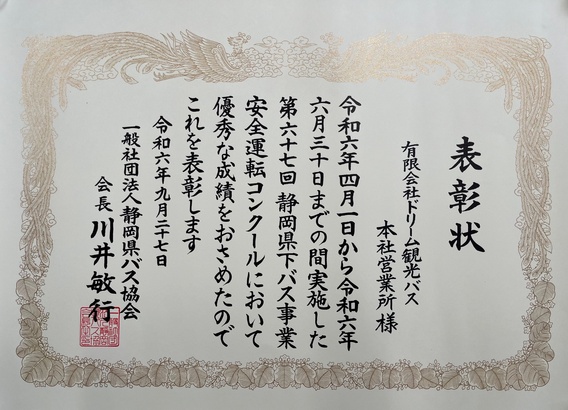 表彰状
有限会社ドリーム観光バス
本社営業所様
令和六年四月一日から令和六年
六月三十日までの間実施した
第六十七回静岡県下バス事業
安全運転コンクールにおいて
優秀な成績をおさめたので
これを表彰します
令和六年九月二十七日
一般社団法人静岡県バス協会
会長 川井敏行